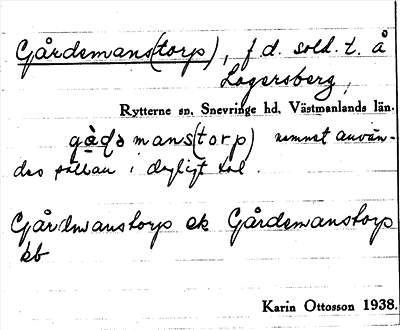 Gårdsmans(torp), f.d. sold.t. å
Lagersberg,
Rytterne sn, Snevringe hd, Västmanlands län.
gàɖmans(torp) namnet använ-
des sällan i dagligt tal.
Gårdmanstorp ek Gårdsmanstorp
kb
Karin Ottosson 1938.